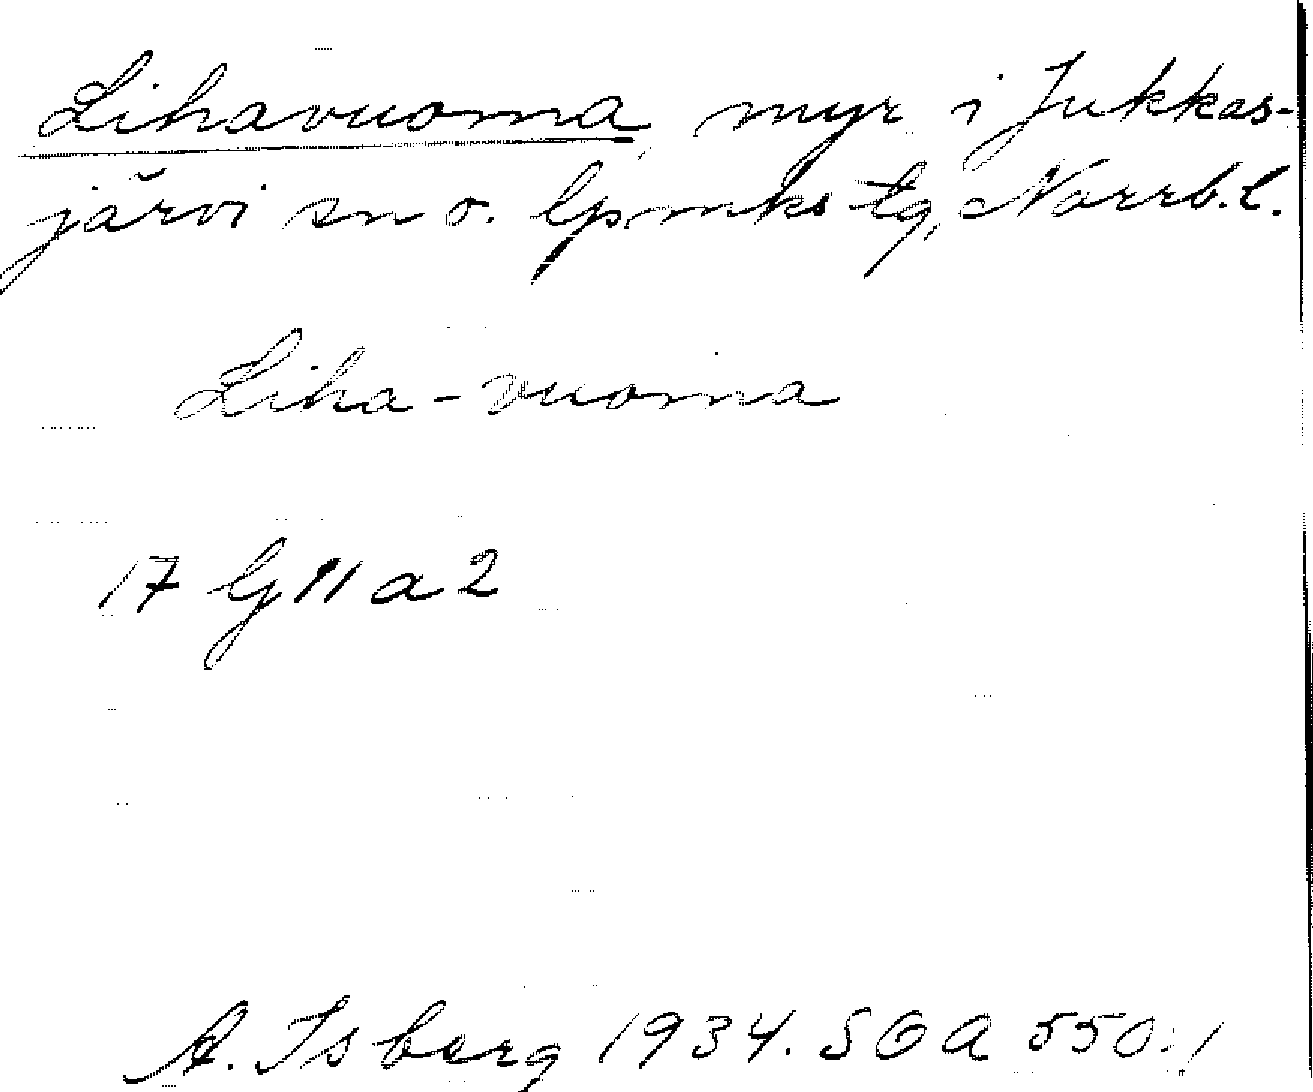 Lihavuoma, myr i Jukkas-
järvi sn o. lpmks tg, Norrb.l.
Liha-vuoma
17 G 11 a 2
A. Isberg 1934. SOA 550:1